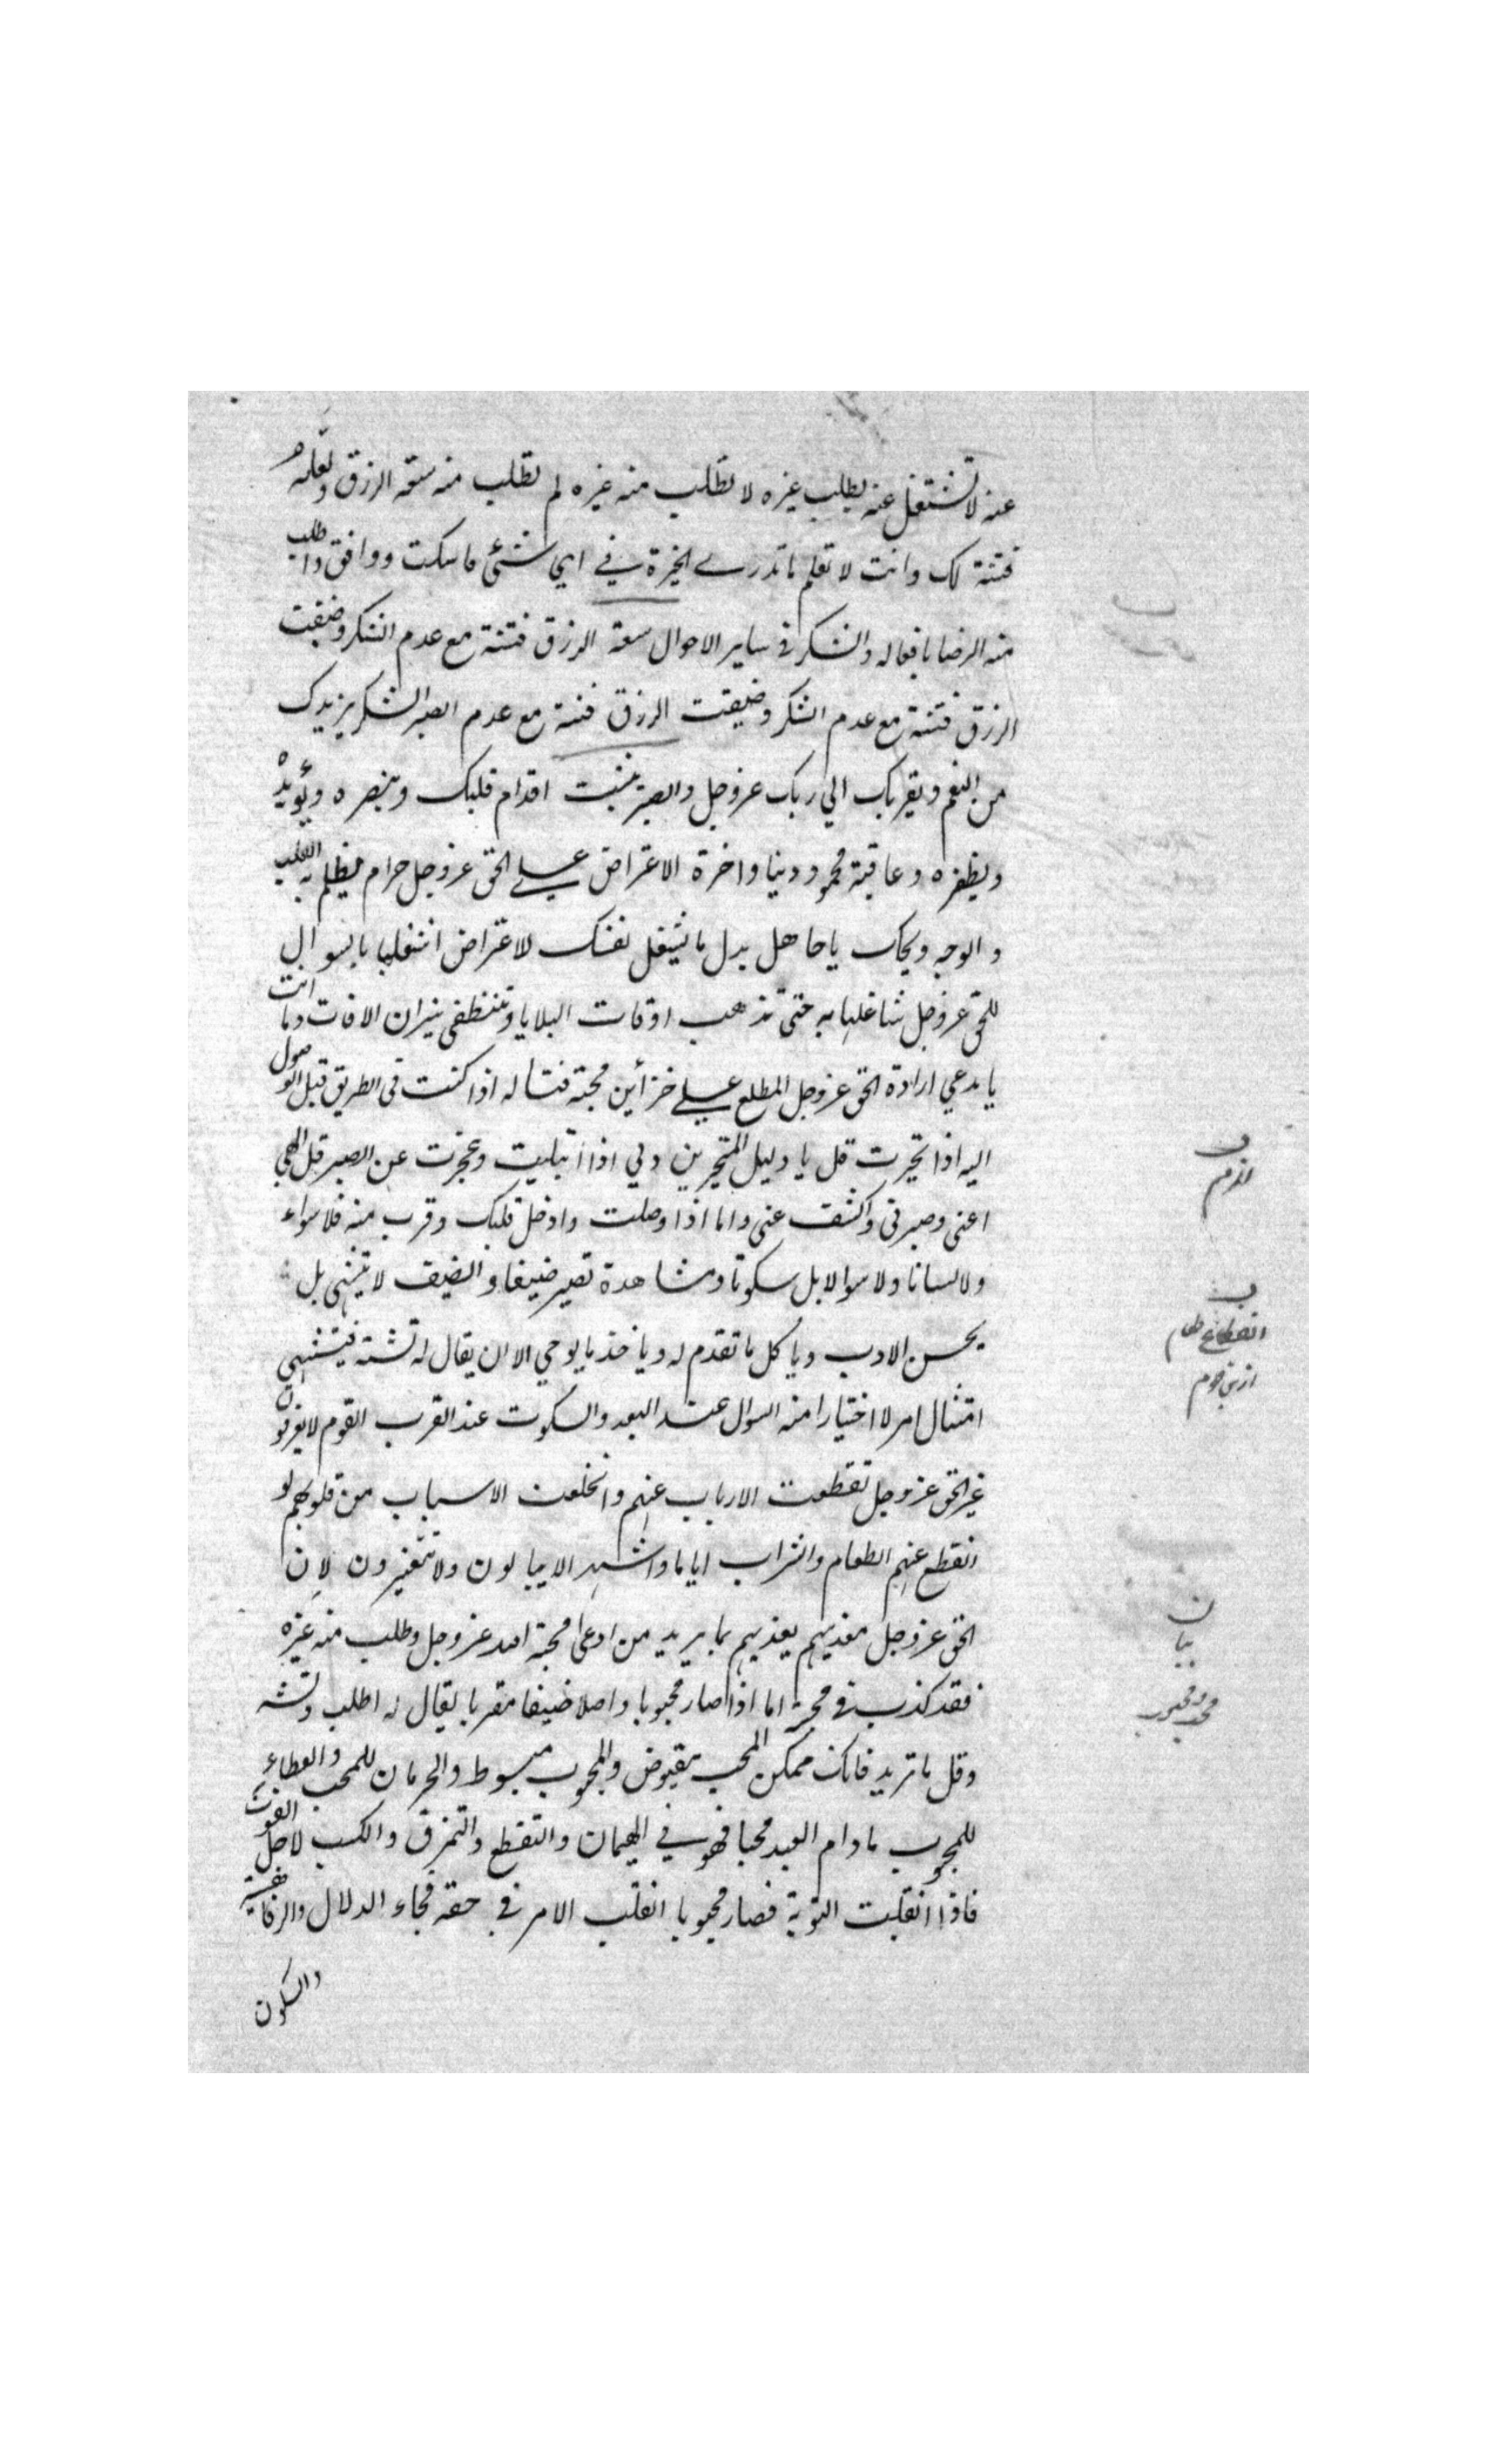 عنه لا تشتغل عنه بطلب غيره لا تطلب منه غيره لم تطلب منه سعة الرزق ولعله
فتنة لك وانت لا تعلم ما تدري الخيرة في اي شئ فاسكت ووافق واطلب
منه الرضا بافعاله والشكر في ساير الاحوال سعة الرزق فتنة مع عدم الشكر وضيقت
الرزق فتنة مع عدم الشكر وضيقت الرزق فتنة مع عدم الصبر الشكر يزيدك
من النعم ويقربك الي ربك عز وجل والصبر يثبت اقدام قلبك وينصره ويؤيده
ويظفره وعاقبته محمود دينا واخرة الاعتراض علي الحق عز وجل حرام يظلم به القلب
والوجه ويحك يا جاهل بدل ما تشغل نفسك للاعتراض اشغلها بالسوال
للحق عز وجل شاغلها به حتى تذهب اوقات البلايا وتنطفى نيران الافات وما انت
يا مدعي ارادة الحق عز وجل المطلع علي خزأين محبته فتساله اذا كنت في الطريق قبل الوصول
اليه اذا تحيرت قل يا دليل المتحيرين دلني اذا ابتليت وعجزت عن الصبر قل الهي
اعني وصبرني واكشف عني واما اذا وصلت وادخل قلبك وقرب منه فلا سواء
ولا لسانا ولا سوالا بل سكوتا ومشاهدة تصير ضيفا والضيف لا يتشهى بل
يحسن الادب وياكل ما تقدم له وياخذ ما يوحي الا ان يقال له تشته فيتشهي
امتثال امر لا اختيارا منه السوال عند البعد والسكوت عند القرب القوم لا يعرفون
غير الحق عز وجل تقطعت الارباب عنهم وانخلعت الاسباب من قلوبهم لو
انقطع عنهم الطعام والشراب اياما واشهرا لا يبالون ولا يتغيرون لان
الحق عز وجل مغذيهم يغذيهم بما يريد من ادعى محبة الله عز وجل وطلب منه غيره
فقد كذب في محبته اما اذا صار محبوبا واصلا ضيفا مقربا يقال له اطلب وتشه
وقل ما تريد فانك ممكن المحب مقبوض والمحبوب مبسوط والحرمان للمحب والعطاء
للمحبوب ما دام العبد محبا فهو في الهيمان والتقطع والتمزق والكسب لاجل القوت
فاذا انقلبت النوبة فصار محبوبا انقلب الامر في حقه فجاء الدلال والرفاهية
والسكون
انقطاع طعام
ازين قوم
بيان
محب ومحبوب